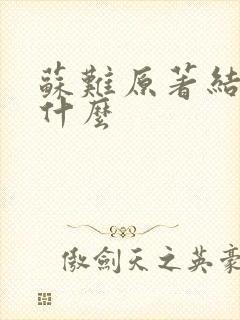 蘇難原著結
什麼
傲劍天之英豪